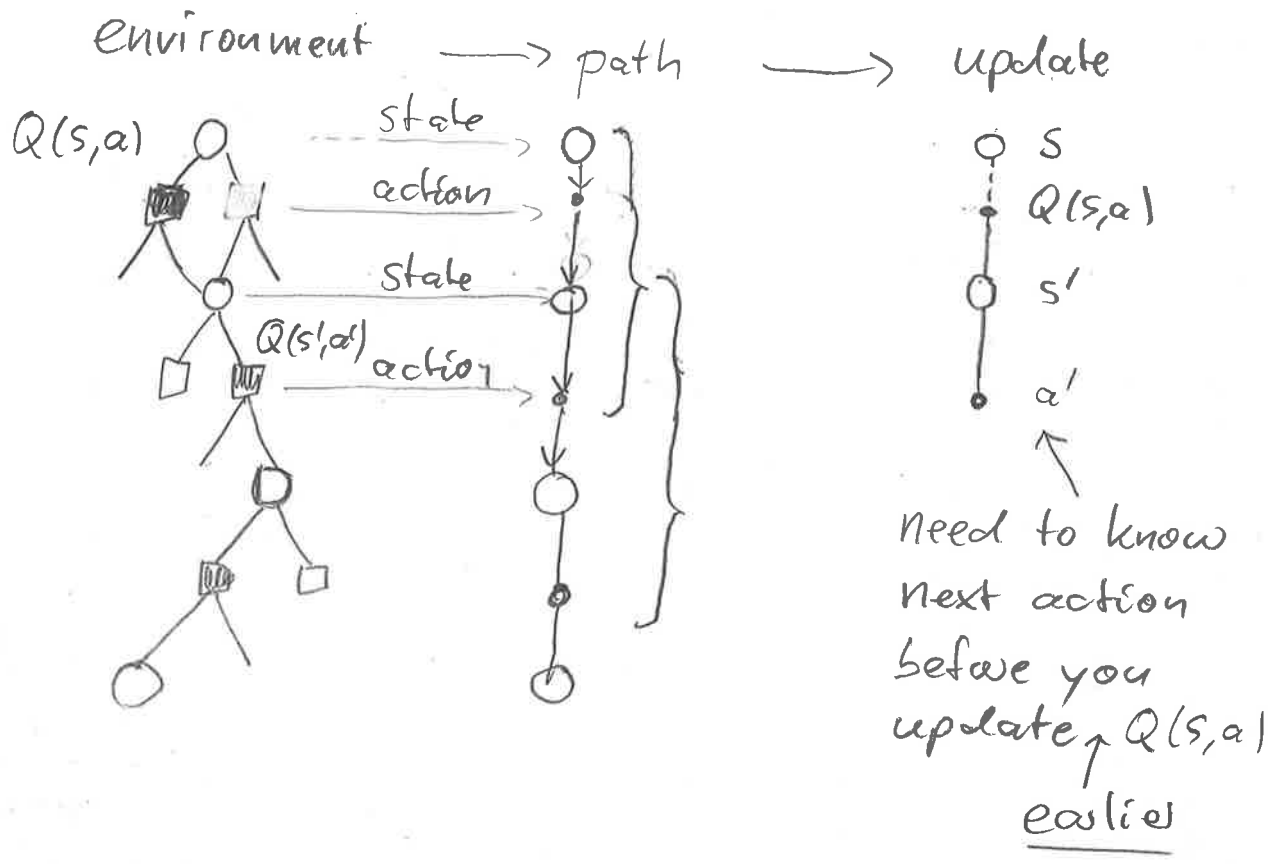 environment → path → update
Q(s,a)
state
action
state
Q(s',a')
action
s
Q(s,a)
s'
a'
need to know
next action
before you
update Q(s,a)
earlier